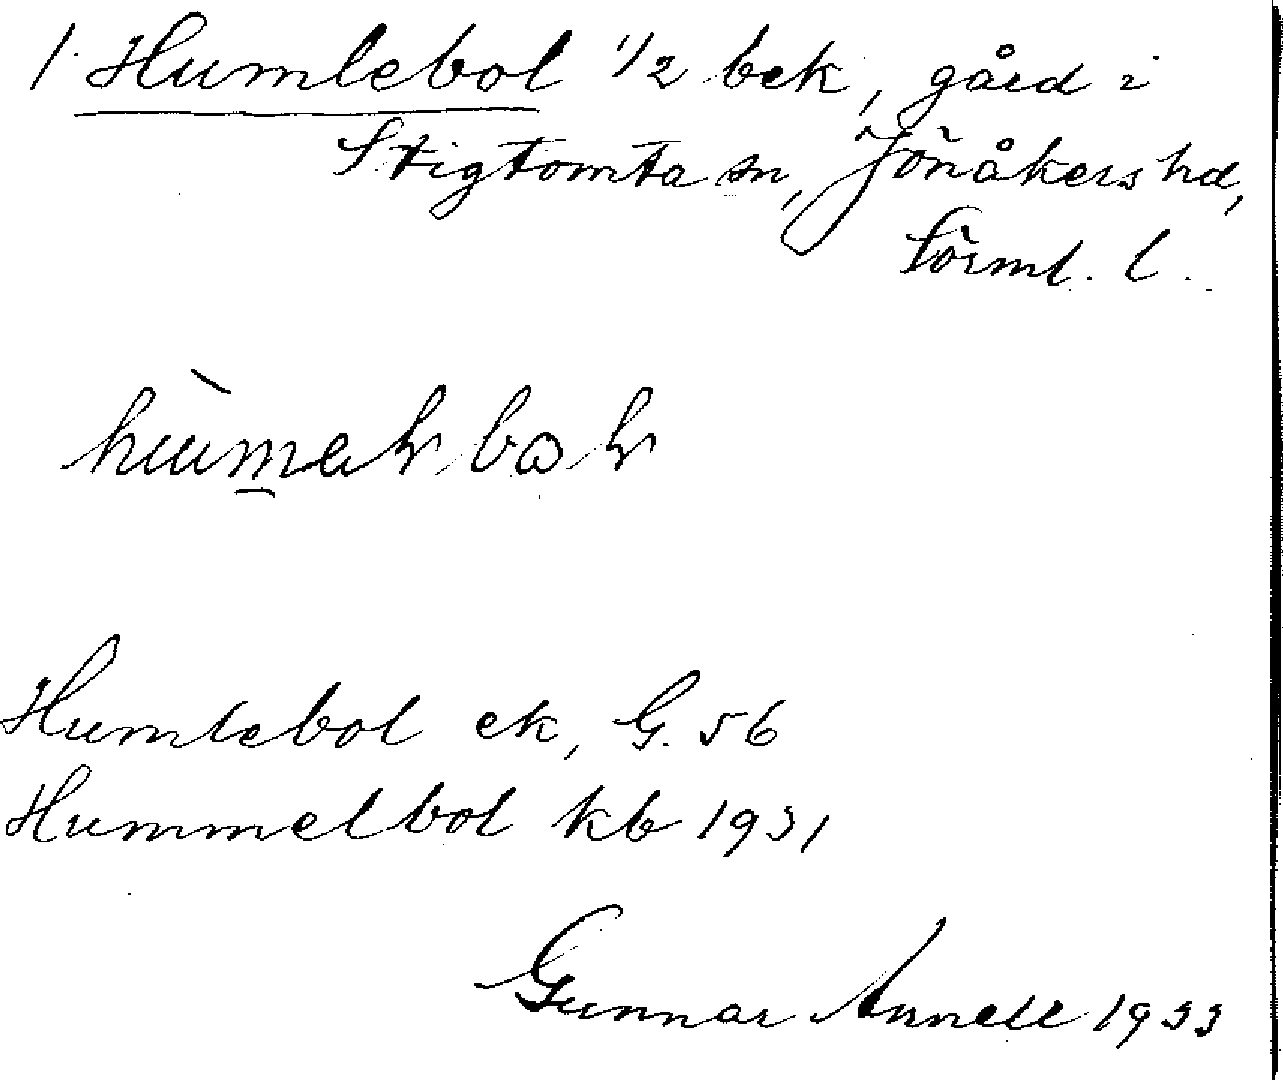 1. Humlebol 1/2 bek, gård i
Stigtomta sn, Jönåkers hd,
Sörml. l.
Humlebol ek, G. 56
Hummelbol kb 1931
Gunnar Annell 1933